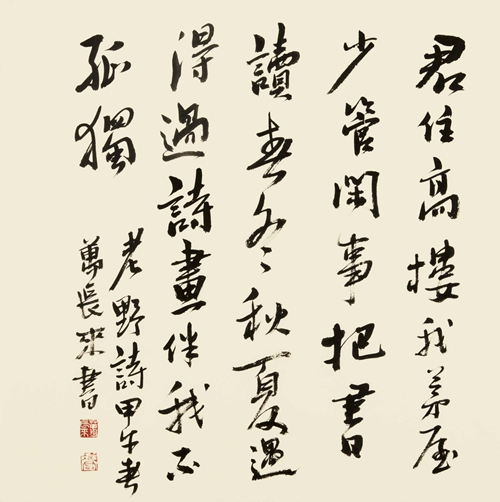 君住高樓我茅屋
少管閑事把書
讀春冬秋夏過
得過詩畫伴我不
孤獨
老野詩甲午春
萬長來書